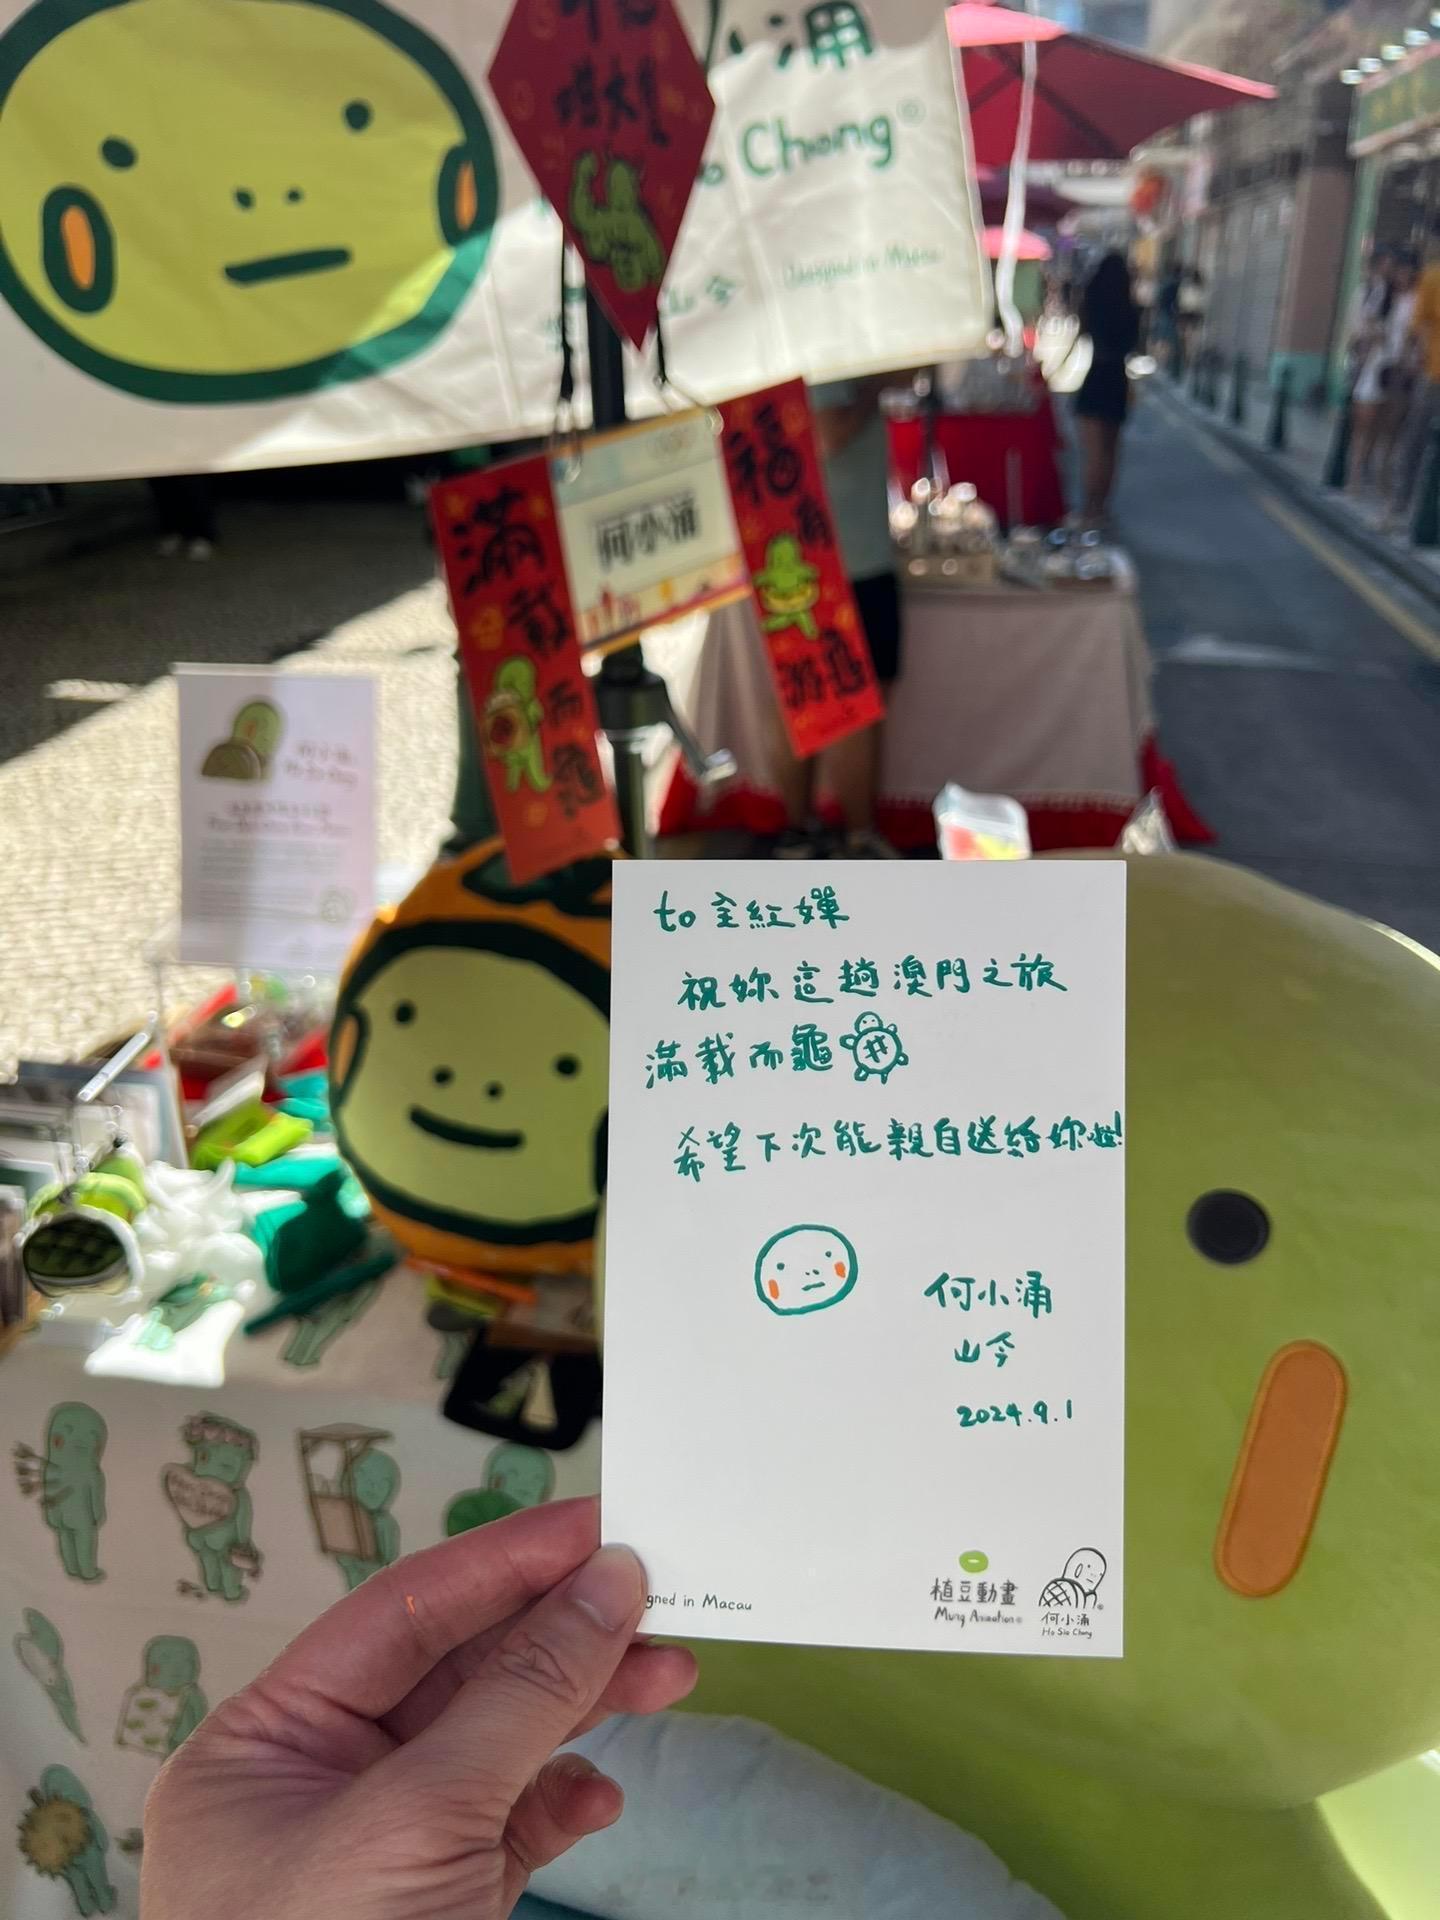 小涌
Chong
山今 Designed in Macau
滿載而龜
何小涌
福
何小涌
Ho Sio Chong
to 全紅嬋
祝妳這趟澳門之旅
滿載而龜
希望下次能親自送給妳啦!
何小涌
山今
2024.9.1
gned in Macau
植豆動畫
Mung Animation
何小涌
Ho Sio Chong